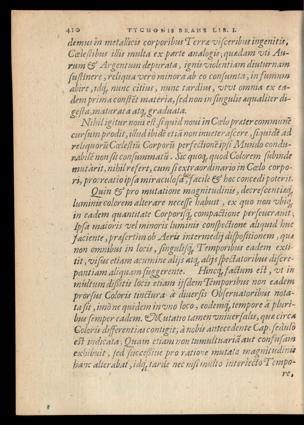 410 TYCHONIS BRAHE LIB. I.
demus in metallicis corporibus Terræ visceribus ingenitis,
Cœlestibus illis multa ex parte analogis, quædam vti Au-
rum & Argentum depurata, ignis violentiam diuturnam
sustinere, reliqua verò minora ab eo consumta, in fumum
abire, idq; nunc citius, nunc tardius, vtvt omnia ex ea-
dem prima constēt materia, sed non in singulis æqualiter di-
gesta, maturata atq; graduata.
Nihil igitur noui est si quid noui in Cœlo præter communē
cursum prodit, illud ibidē etiā non inueterascere, siquidē ad
reliquorū Cœlestiū Corporū perfectionē ipsi Mundo condu-
rabilē non sit consummatū. Sic quoq; quod Colorem subinde
mutârit, nihil refert, cum si extraordinarium in Cœlo corpo-
ri, pro ratio ipsa miraculosa, facilè & hoc concedi poterit.
Quin & pro mutatione magnitudinis, decrescentisq;
luminis colorem alterare necesse habuit, ex quo non vbiq;
in eadem quantitate Corporisq; compactione perseuerarit,
Ipsa maioris vel minoris luminis compactione aliquid huc
faciente, præsertim ob Aëris intermedij dispositionem, quæ
non omnibus in locis, singulisq; Temporibus eadem exti-
tit, visus etiam acumine alijs atq; alijs spectatoribus discre-
pantiam aliquam suggerente. Hincq; factum est, vt in
multum dissitis locis etiam ijsdem Temporibus non eadem
prorsus Coloris tinctura à diuersis Obseruatoribus nota-
ta sit, imò ne quidem in vno loco, eodemq; tempore à pluri-
bus semper eadem. & Mutatio tamen vniuersalis, quæ circa
Coloris differentias contigit, à nobis antecedente Cap. sedulò
est indicata; Quam etiam non tumultuariā aut confusam
exhibuit, sed successiuè pro ratione mutatæ magnitudinis
hanc alterabat, idq; tardè nec nisi multo interiecto Tempo-
re,